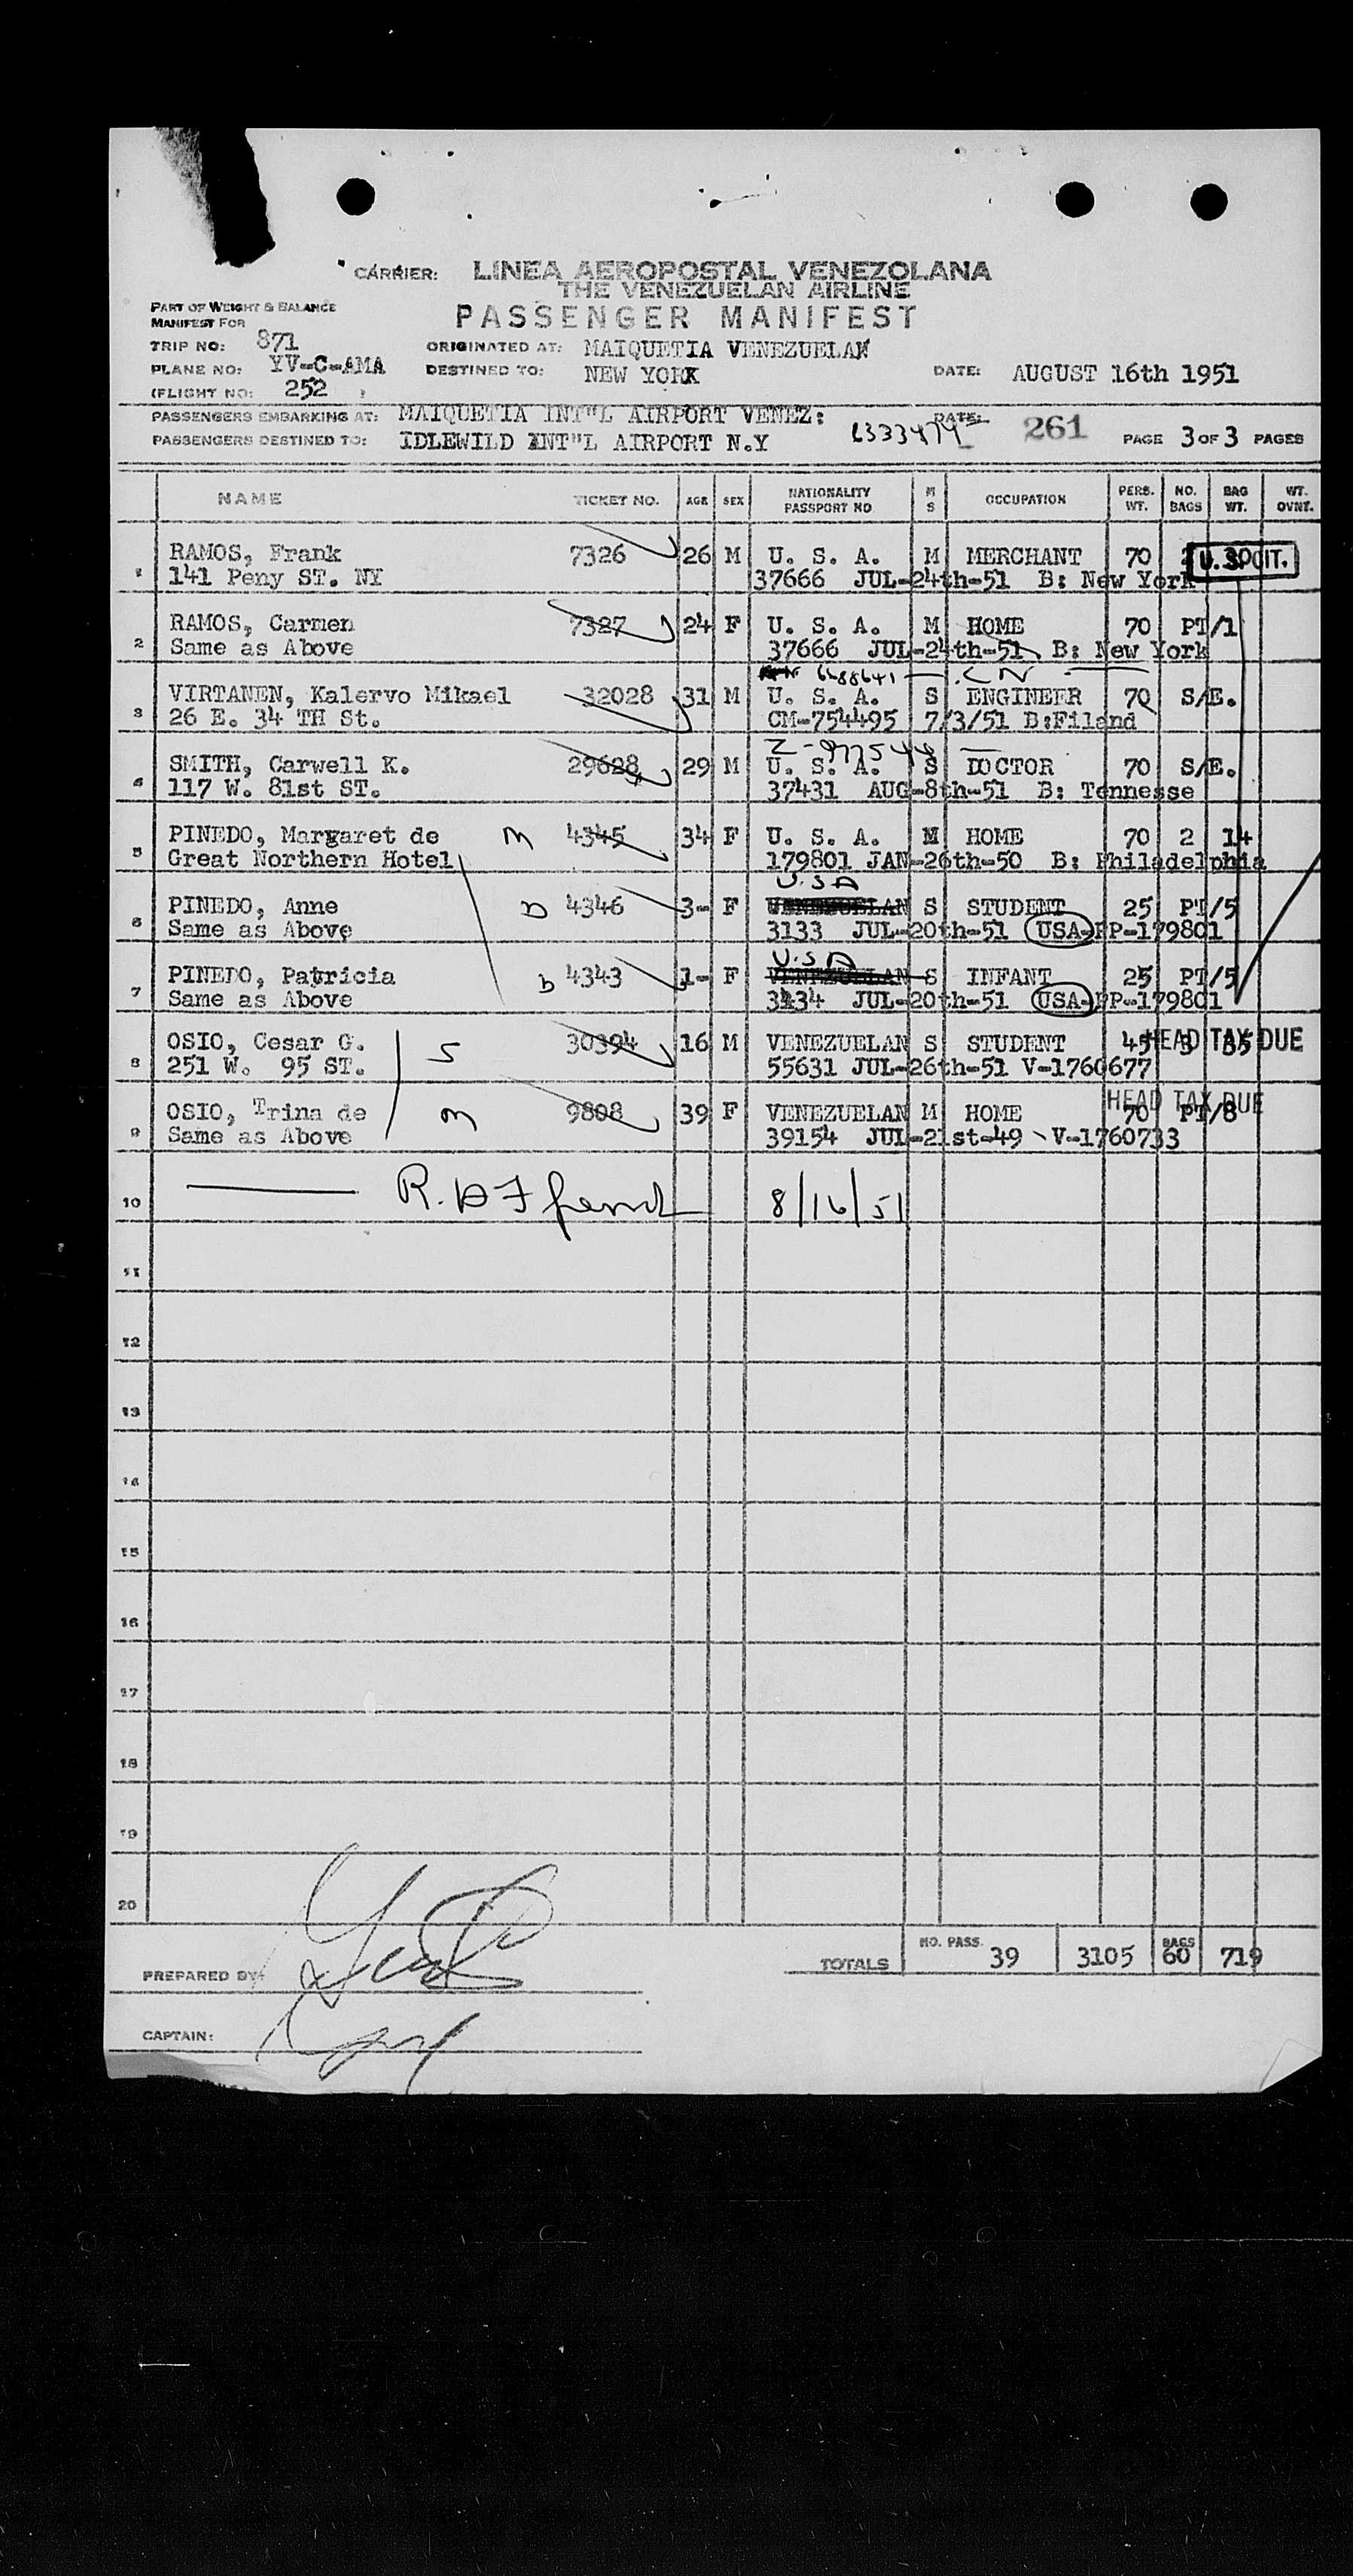 CARRIER: LINEA AEROPOSTAL VENEZOLANA
THE VENEZUELAN AIRLINE
PASSENGER MANIFEST
PART OF WEIGHT & BALANCE
MANIFEST FOR
TRIP NO: 871 ORIGINATED AT: MAIQUETIA VENEZUELAN
PLANE NO: YV-C-AMA DESTINED TO: NEW YORK DATE: AUGUST 16th 1951
(FLIGHT NO: 252 )
PASSENGERS EMBARKING AT: MAIQUETIA INT"L AIRPORT VENEZ: DATE: 261 PAGE 3 OF 3 PAGES
PASSENGERS DESTINED TO: IDLEWILD INT"L AIRPORT N.Y
NAME TICKET NO. AGE SEX NATIONALITY PASSPORT NO M S OCCUPATION PERS. WT. NO. BAGS BAG WT. WT. OVNT.
1 RAMOS, Frank 7326 26 M U. S. A. M MERCHANT 70 U.S. CIT.
141 Peny ST. NY 37666 JUL-24th-51 B: New York
2 RAMOS, Carmen 7327 24 F U. S. A. M HOME 70 PT/1
Same as Above 37666 JUL-24th-51 B: New York
6488641
3 VIRTANEN, Kalervo Mikael 32028 31 M U. S. A. S ENGINEER 70 S/E.
26 E. 34 TH St. CM-754495 7/3/51 B:Filand
4 SMITH, Carwell K. 29628 29 M U. S. A. S DOCTOR 70 S/E.
117 W. 81st ST. 37431 AUG-8th-51 B: Tennesse
5 PINEDO, Margaret de m 4345 34 F U. S. A. M HOME 70 2 14
Great Northern Hotel 179801 JAN-26th-50 B: Philadelphia
U.S A
6 PINEDO, Anne D 4346 3- F VENEZUELAN S STUDENT 25 PT/5
Same as Above 3133 JUL-20th-51 USA-PP-179801
U.S A
7 PINEDO, Patricia D 4343 1- F VENEZUELAN S INFANT 25 PT/5
Same as Above 3134 JUL-20th-51 USA-PP-179801
8 OSIO, Cesar G. S 30394 16 M VENEZUELAN S STUDENT 45 3 35 HEAD TAX DUE
251 W. 95 ST. 55631 JUL-26th-51 V-1760677
9 OSIO, Trina de m 9808 39 F VENEZUELAN M HOME 70 PT/8 HEAD TAX DUE
Same as Above 39154 JUL-21st-49 V-1760733
10 8/16/51
11
12
13
14
15
16
17
18
19
20
TOTALS NO. PASS. 39 3105 BAGS 60 719
PREPARED BY:
CAPTAIN: